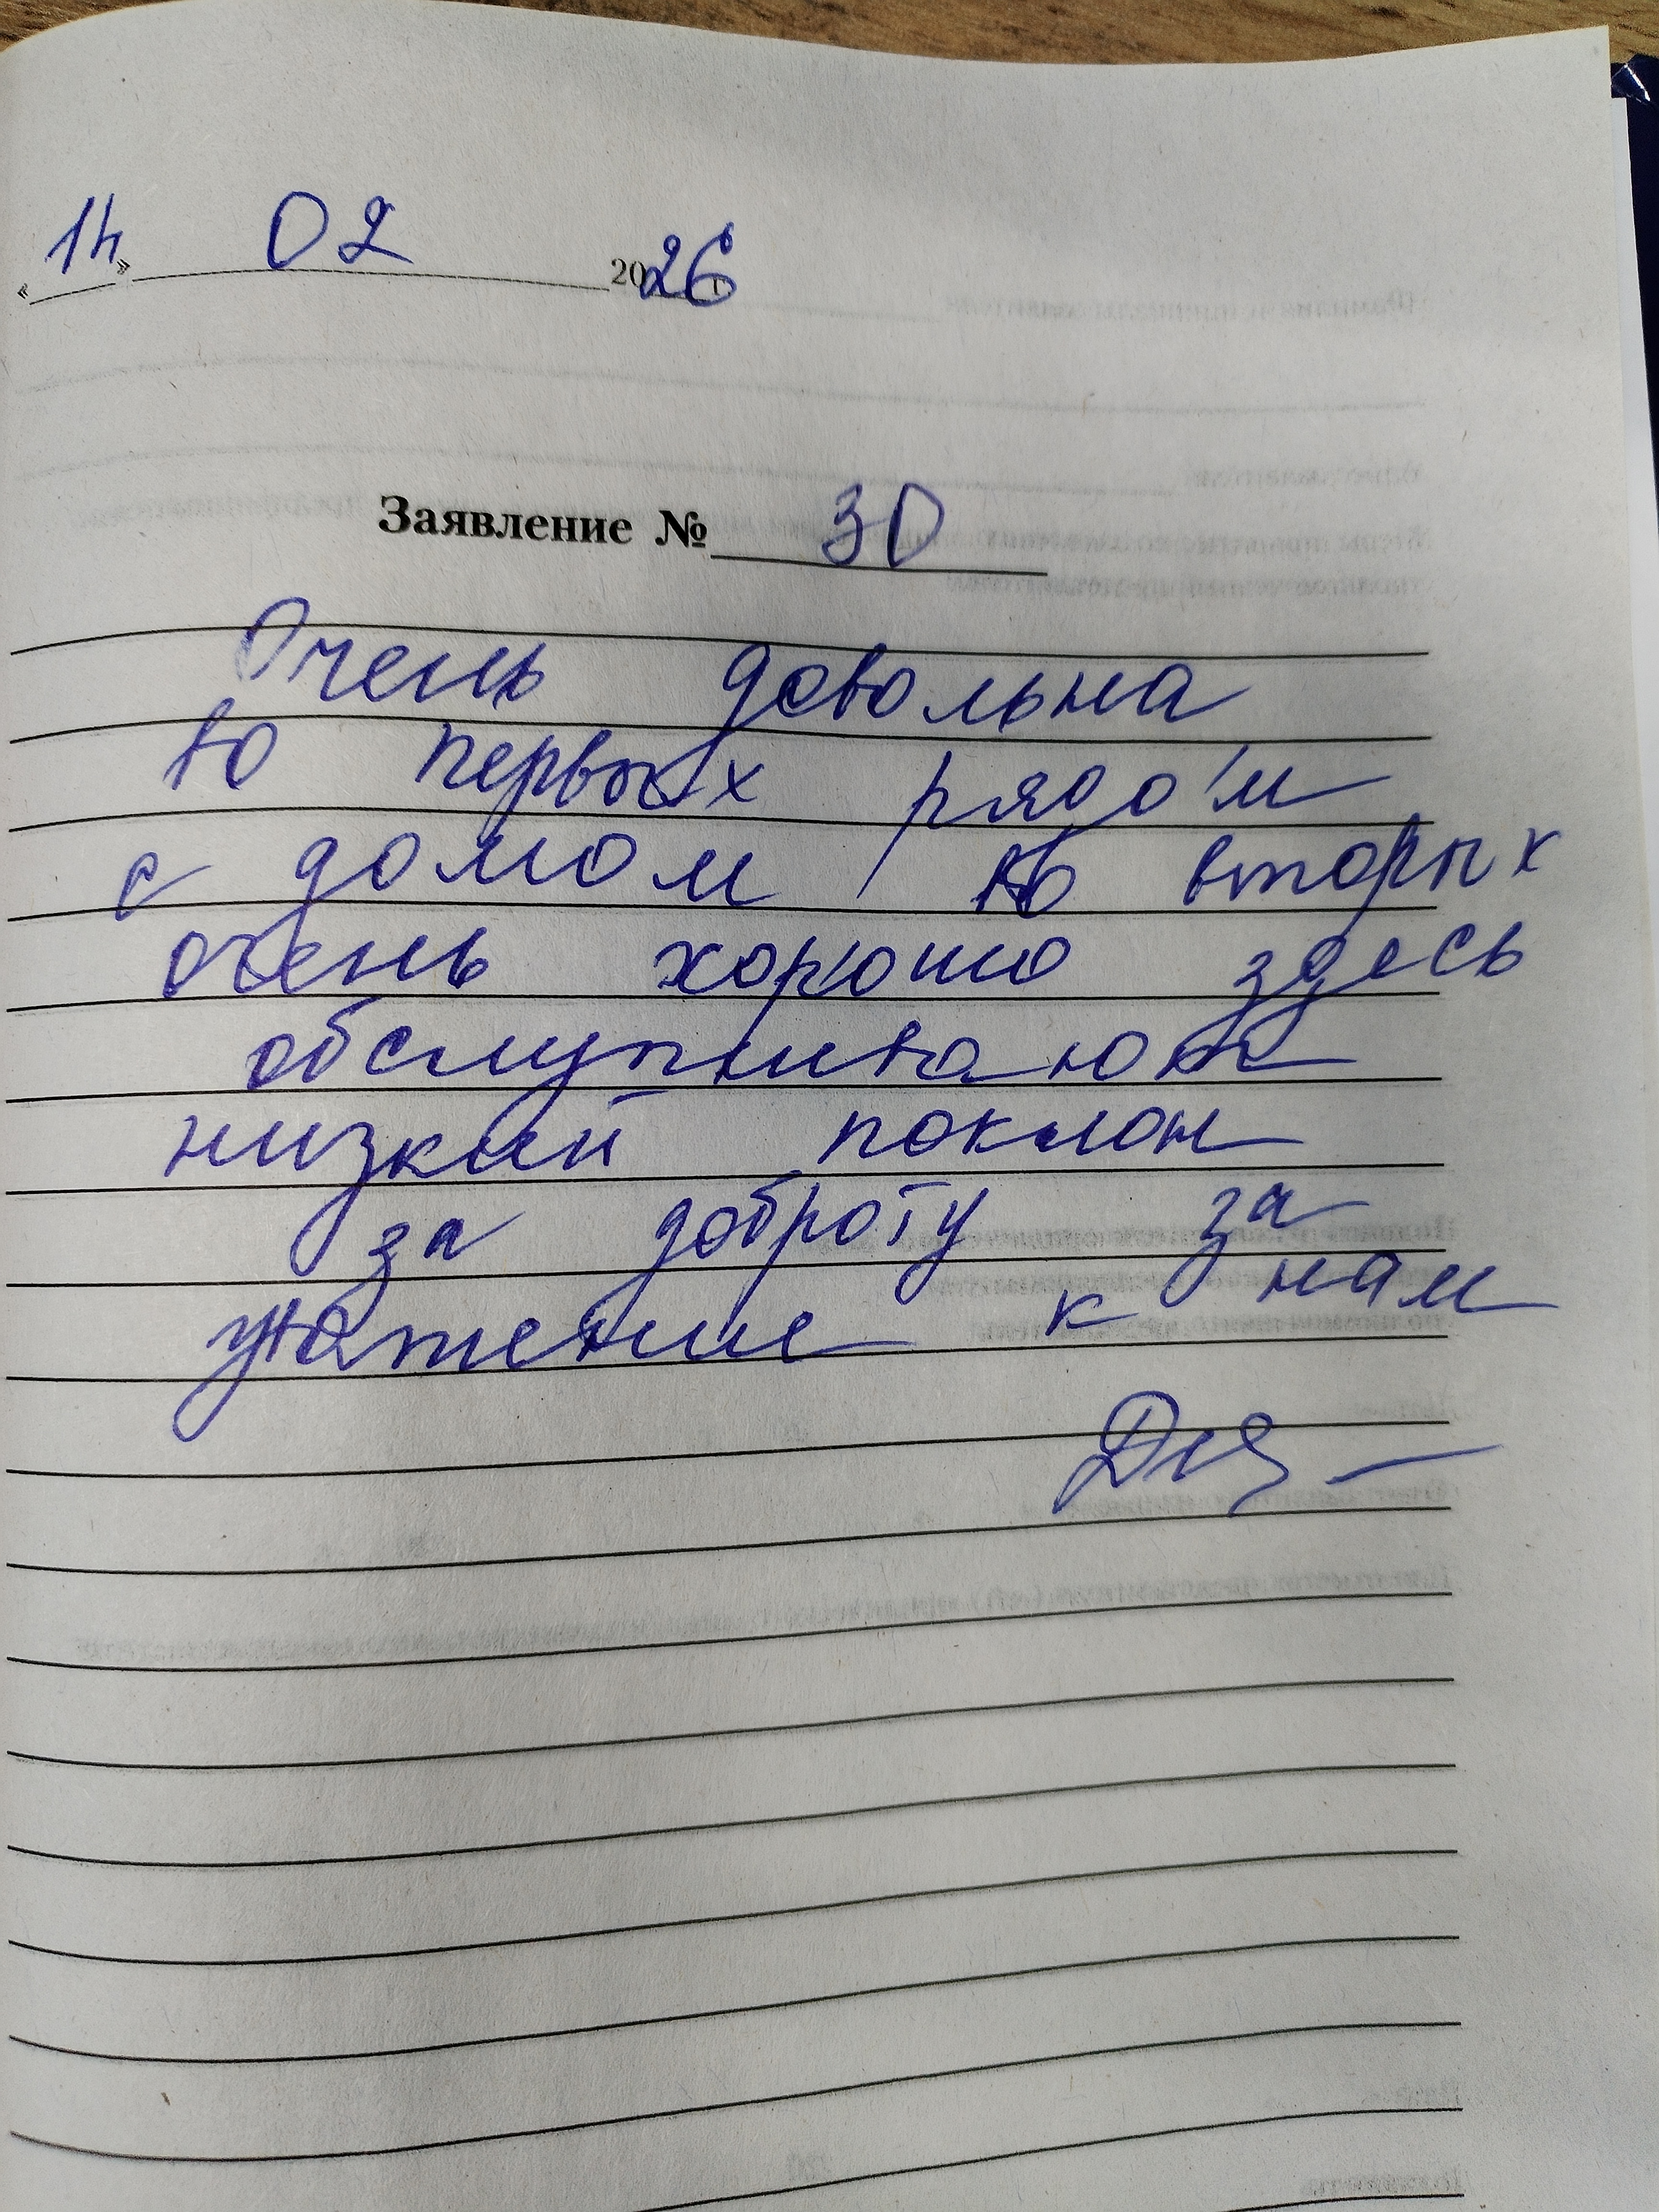 «14» 02 2026 г.
Заявление № 30
Очень довольна
во первых рядом
с домом во вторых
очень хорошо здесь
обслуживают
низкий поклон
за доброту за
уважение к нам